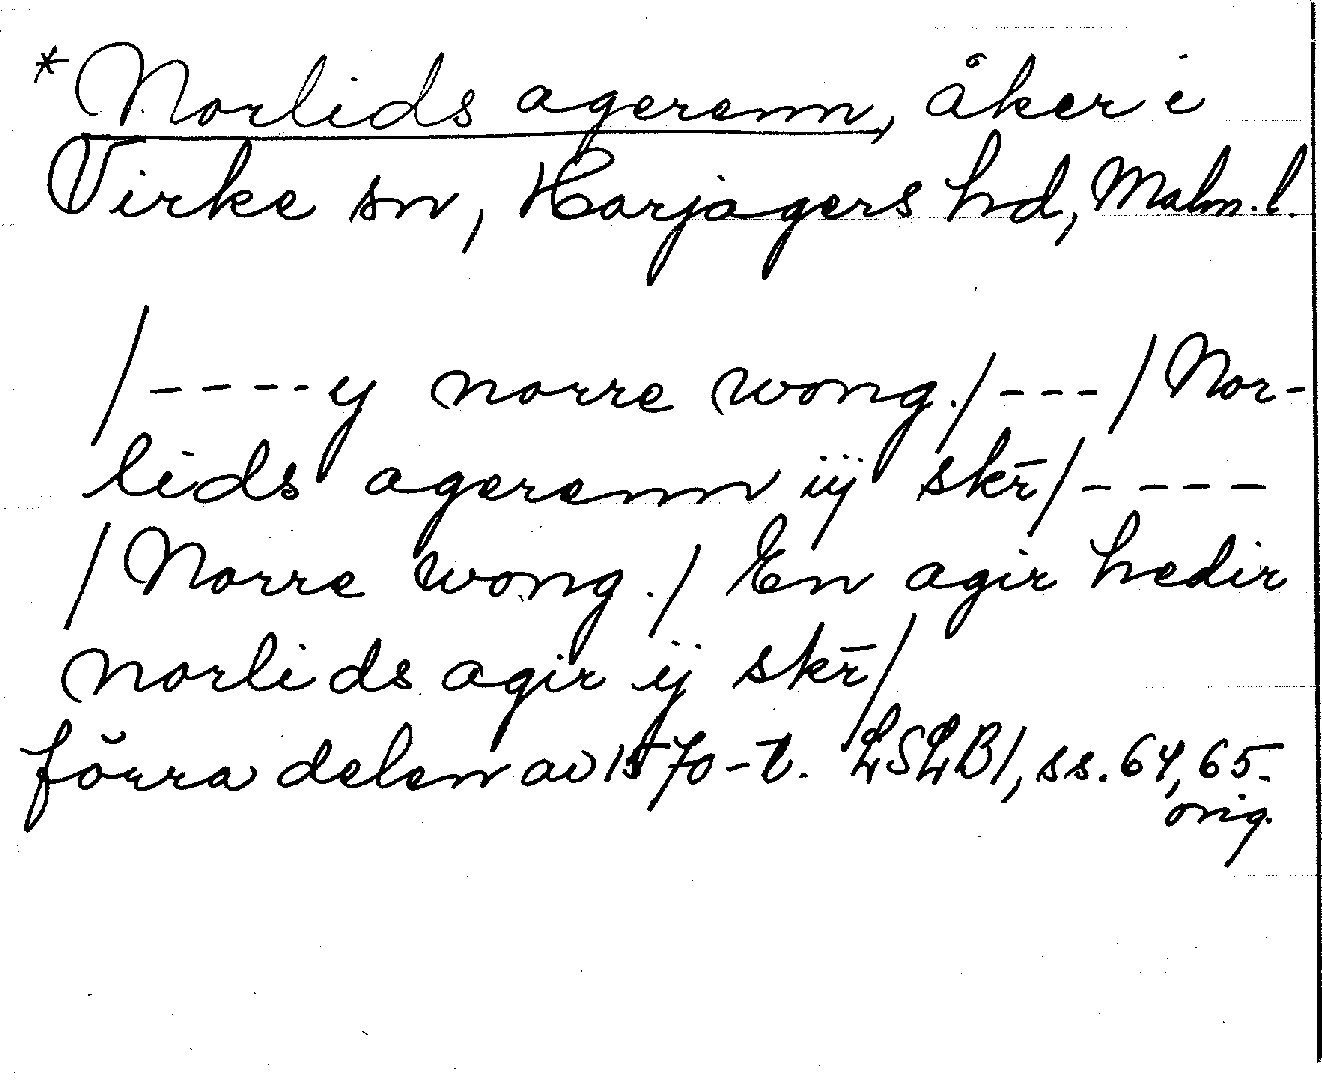 * Norlids agerenn, åker i
Virke sn, Harjagers hd, Malm.l.
/----y norre wong./---/Nor-
lids agerenn iij skr̄/----
/Norre wong./ En agir hedir
norlids agir ij skr̄/
förra delen av 1570-t. LSLB1, ss. 64, 65.
orig.